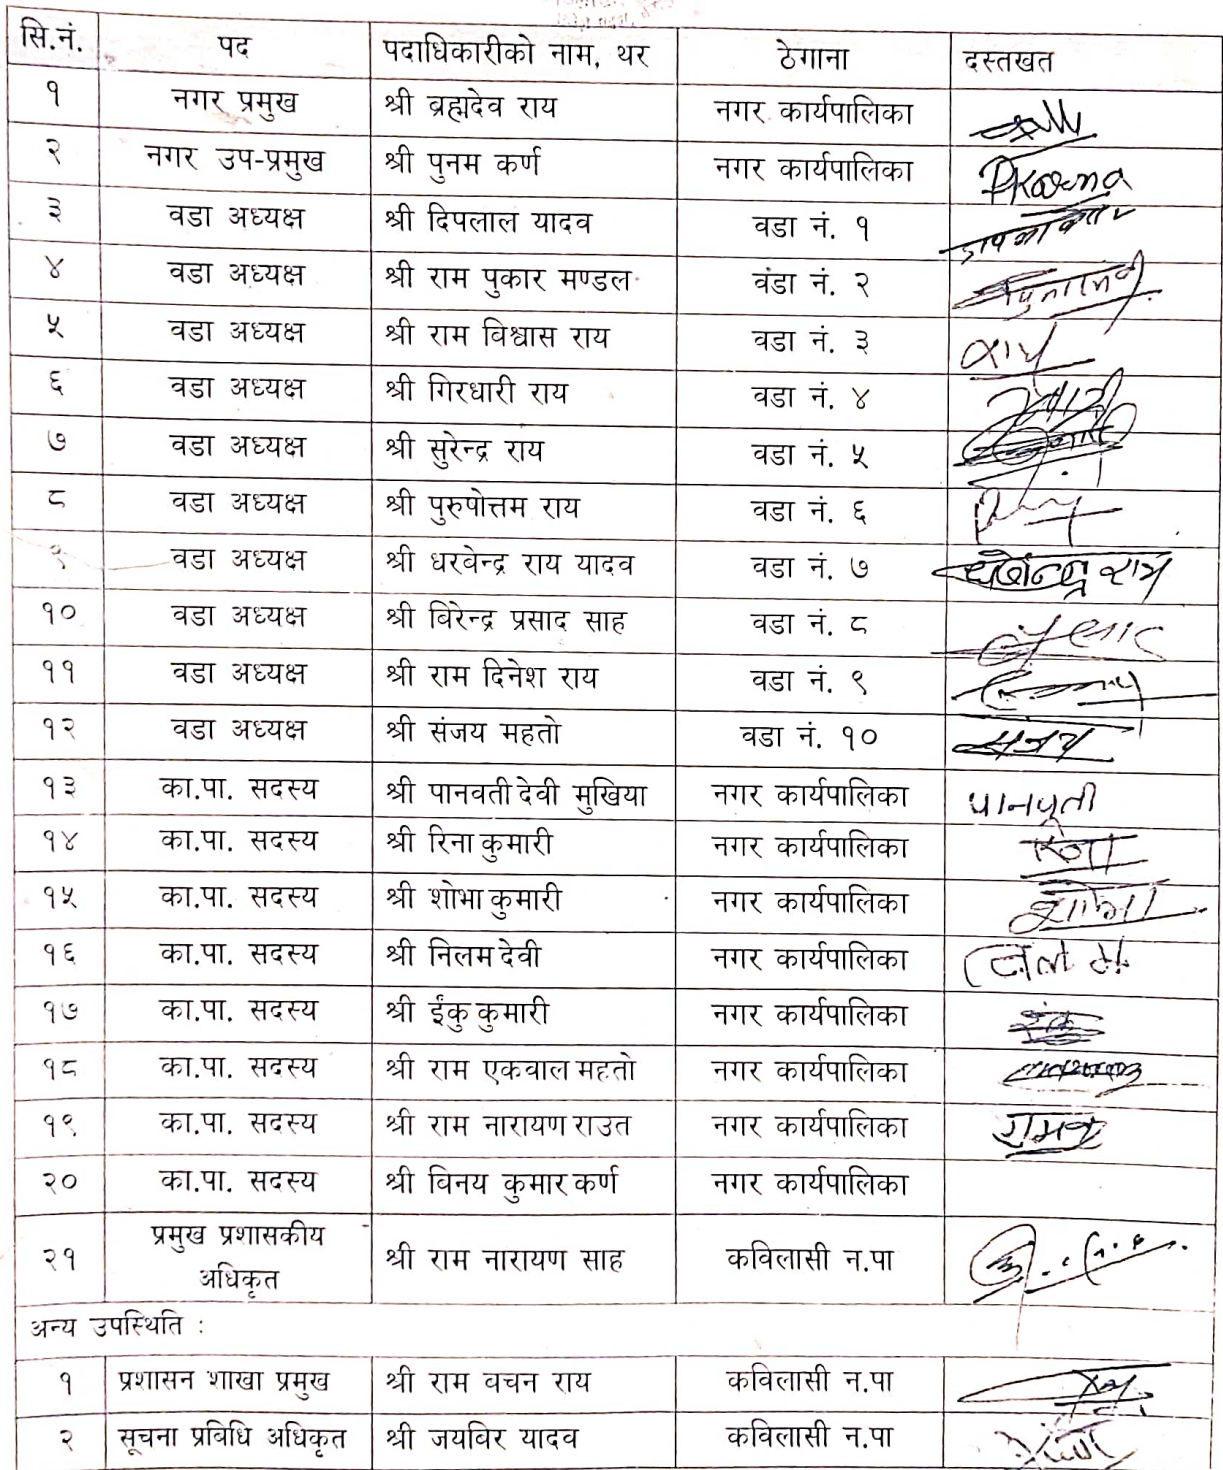 सि.नं. पद पदाधिकारीको नाम, थर ठेगाना दस्तखत
१ नगर प्रमुख श्री ब्रह्मदेव राय नगर कार्यपालिका
२ नगर उप-प्रमुख श्री पुनम कर्ण नगर कार्यपालिका Pkarna
३ वडा अध्यक्ष श्री दिपलाल यादव वडा नं. १
४ वडा अध्यक्ष श्री राम पुकार मण्डल वंडा नं. २
५ वडा अध्यक्ष श्री राम विश्वास राय वडा नं. ३
६ वडा अध्यक्ष श्री गिरधारी राय वडा नं. ४
७ वडा अध्यक्ष श्री सुरेन्द्र राय वडा नं. ५
८ वडा अध्यक्ष श्री पुरुषोत्तम राय वडा नं. ६
९ वडा अध्यक्ष श्री धरबेन्द्र राय यादव वडा नं. ७
१० वडा अध्यक्ष श्री बिरेन्द्र प्रसाद साह वडा नं. ८
११ वडा अध्यक्ष श्री राम दिनेश राय वडा नं. ९
१२ वडा अध्यक्ष श्री संजय महतो वडा नं. १०
१३ का.पा. सदस्य श्री पानवती देवी मुखिया नगर कार्यपालिका
१४ का.पा. सदस्य श्री रिना कुमारी नगर कार्यपालिका
१५ का.पा. सदस्य श्री शोभा कुमारी नगर कार्यपालिका
१६ का.पा. सदस्य श्री निलम देवी नगर कार्यपालिका
१७ का.पा. सदस्य श्री ईंकु कुमारी नगर कार्यपालिका
१८ का.पा. सदस्य श्री राम एकवाल महतो नगर कार्यपालिका
१९ का.पा. सदस्य श्री राम नारायण राउत नगर कार्यपालिका
२० का.पा. सदस्य श्री विनय कुमार कर्ण नगर कार्यपालिका
प्रमुख प्रशासकीय
२१ श्री राम नारायण साह कविलासी न.पा
अधिकृत
अन्य उपस्थिति :
१ प्रशासन शाखा प्रमुख श्री राम वचन राय कविलासी न.पा
२ सूचना प्रविधि अधिकृत श्री जयविर यादव कविलासी न.पा